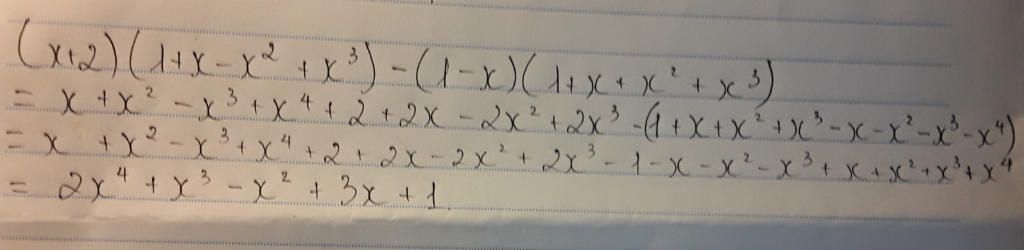 (x+2)(1+x-x²+x³)-(1-x)(1+x+x²+x³)
= x+x²-x³+x⁴+2+2x-2x²+2x³-(1+x+x²+x³-x-x²-x³-x⁴)
= x+x²-x³+x⁴+2+2x-2x²+2x³-1-x-x²-x³+x+x²+x³+x⁴
= 2x⁴+x³-x²+3x+1.